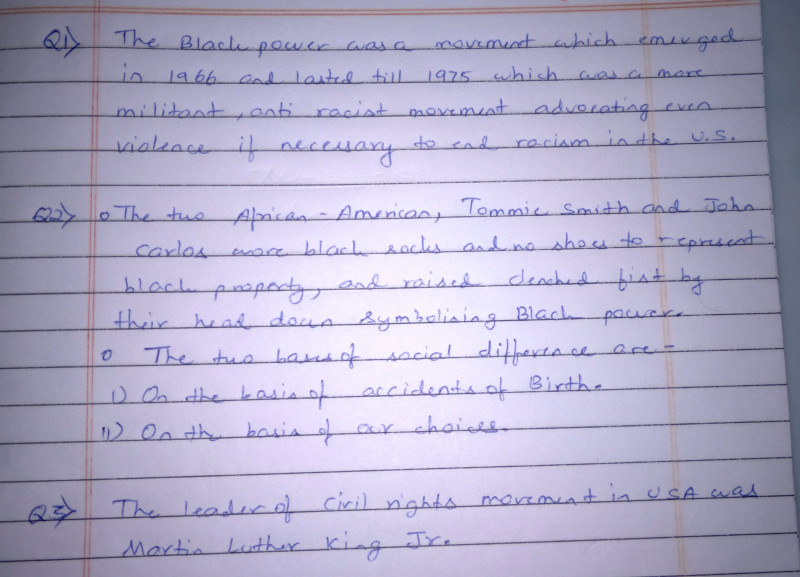 Q1) The Black power was a movement which emerged
in 1966 and lasted till 1975 which was a more
militant, anti racist movement advocating even
violence if necessary to end racism in the U.S.
Q2) o The two African-American, Tommie Smith and John
Carlos wore black socks and no shoes to represent
black property, and raised clenched fist by
their head down symbolising Black power.
o The two bases of social difference are -
i) On the basis of accidents of Birth.
ii) On the basis of our choices.
Q3) The leader of Civil rights movement in USA was
Martin Luther King Jr.